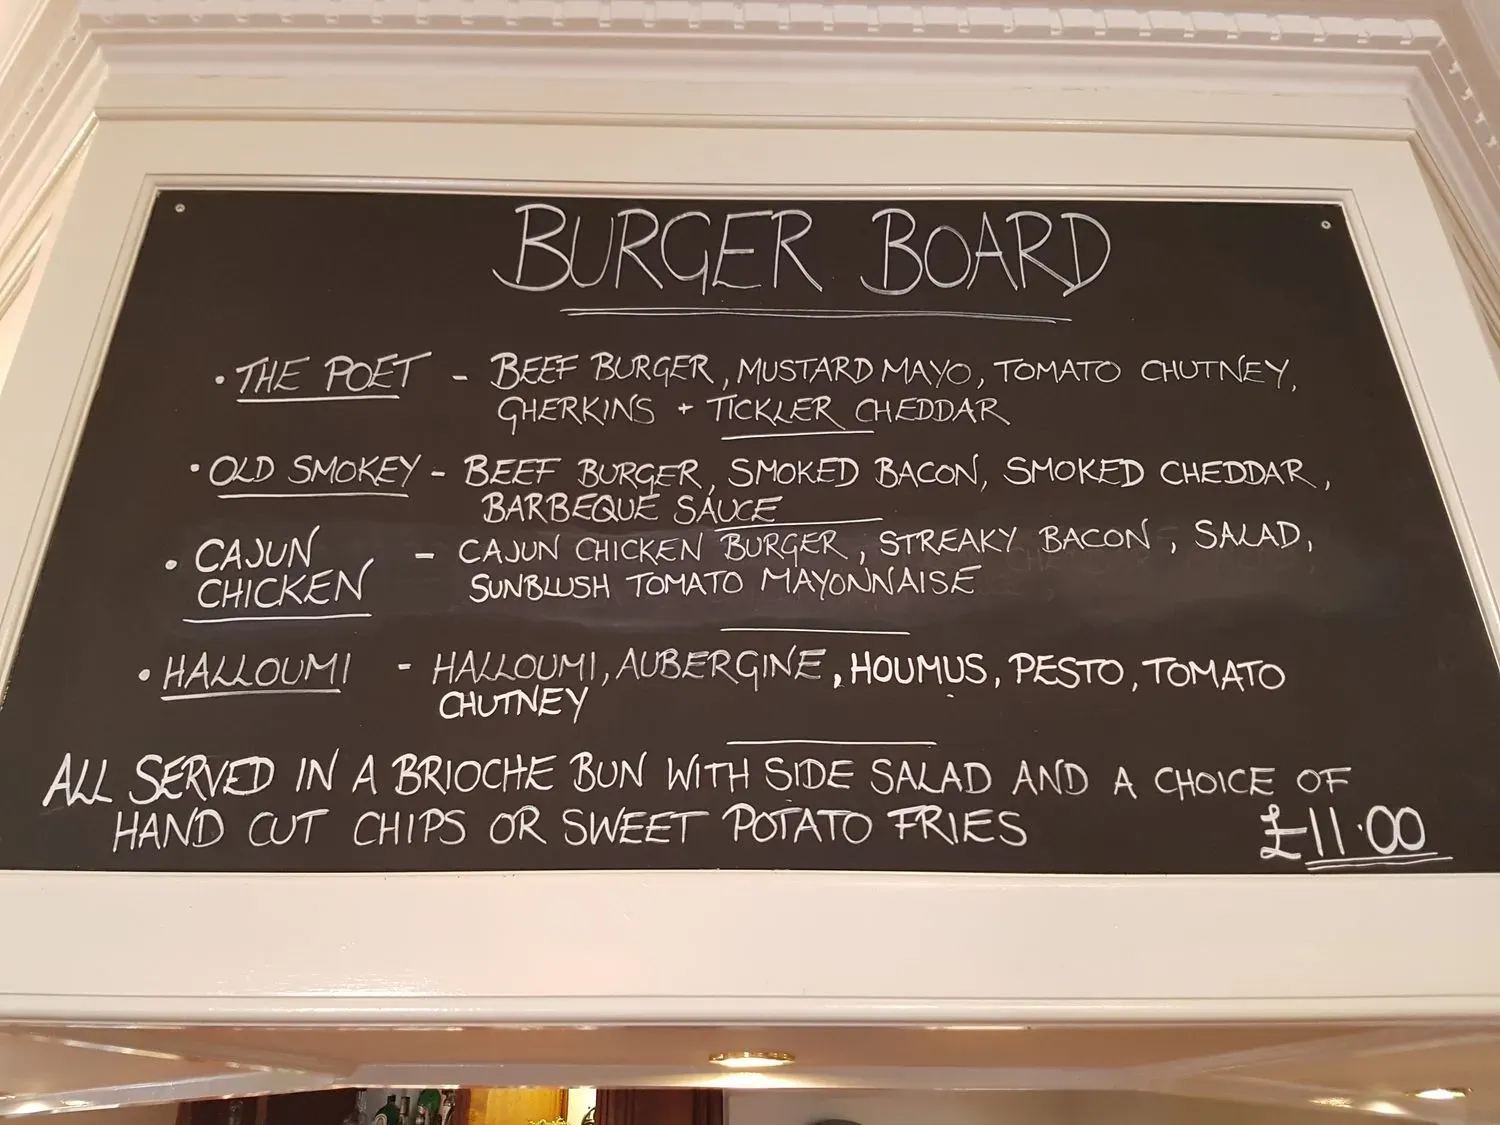 BURGER BOARD
• THE POET - BEEF BURGER, MUSTARD MAYO, TOMATO CHUTNEY,
GHERKINS + TICKLER CHEDDAR
• OLD SMOKEY - BEEF BURGER, SMOKED BACON, SMOKED CHEDDAR,
BARBEQUE SAUCE
• CAJUN - CAJUN CHICKEN BURGER, STREAKY BACON, SALAD,
CHICKEN SUNBLUSH TOMATO MAYONNAISE
• HALLOUMI - HALLOUMI, AUBERGINE, HOUMUS, PESTO, TOMATO
CHUTNEY
ALL SERVED IN A BRIOCHE BUN WITH SIDE SALAD AND A CHOICE OF
HAND CUT CHIPS OR SWEET POTATO FRIES £11.00